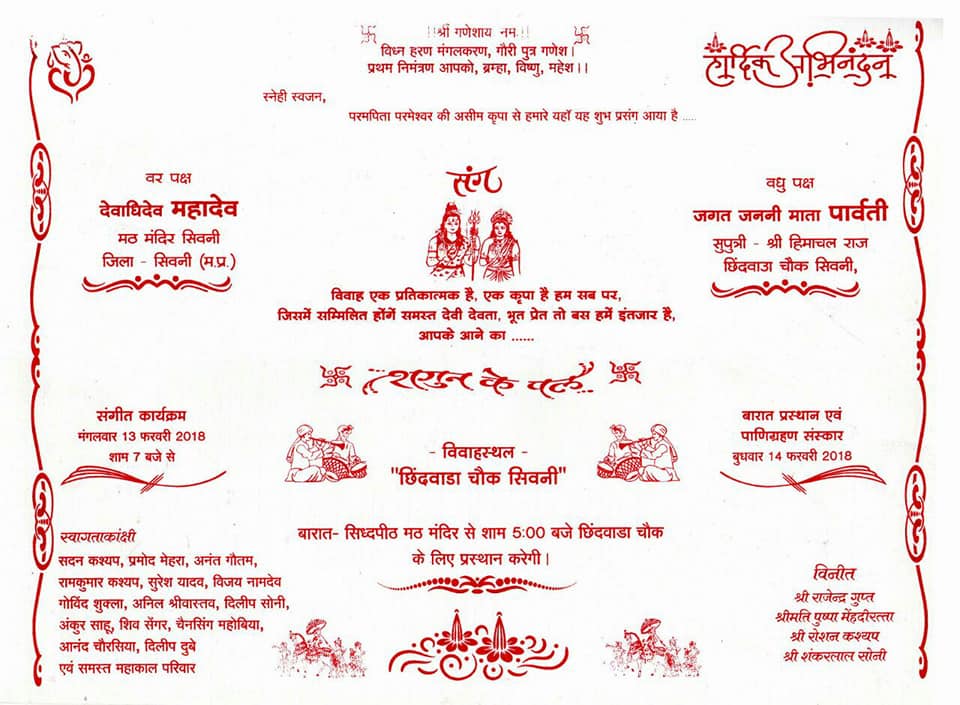 !!श्री गणेशाय नमः!!
विध्न हरण मंगलकरण, गौरी पुत्र गणेश।
प्रथम निमंत्रण आपको, ब्रम्हा, विष्णु, महेश।।
हार्दिक अभिनंदन
स्नेही स्वजन,
परमपिता परमेश्वर की असीम कृपा से हमारे यहाॅ यह शुभ प्रसंग आया है .....
वर पक्ष
देवाधिदेव महादेव
मठ मंदिर सिवनी
जिला - सिवनी (म.प्र.)
संग
वधु पक्ष
जगत जननी माता पार्वती
सुपुत्री - श्री हिमाचल राज
छिंदवाडा चौक सिवनी,
विवाह एक प्रतिकात्मक है, एक कृपा है हम सब पर,
जिसमें सम्मिलित होंगें समस्त देवी देवता, भूत प्रेत तो बस हमें इंतजार है,
आपके आने का ......
शगुन के पल
संगीत कार्यक्रम
मंगलवार 13 फरवरी 2018
शाम 7 बजे से
- विवाहस्थल -
"छिंदवाडा चौक सिवनी"
बारात प्रस्थान एवं
पाणिग्रहण संस्कार
बुधवार 14 फरवरी 2018
बारात- सिध्दपीठ मठ मंदिर से शाम 5:00 बजे छिंदवाडा चौक
के लिए प्रस्थान करेगी।
स्वागताकांक्षी
सदन कश्यप, प्रमोद मेहरा, अनंत गौतम,
रामकुमार कश्यप, सुरेश यादव, विजय नामदेव
गोविंद शुक्ला, अनिल श्रीवास्तव, दिलीप सोनी,
अंकुर साहू, शिव सेंगर, चैनसिंग महोबिया,
आनंद चौरसिया, दिलीप दुबे
एवं समस्त महाकाल परिवार
विनीत
श्री राजेन्द्र गुप्त
श्रीमति पुष्पा मेंहदीरत्ता
श्री रोशन कश्यप
श्री शंकरलाल सोनी